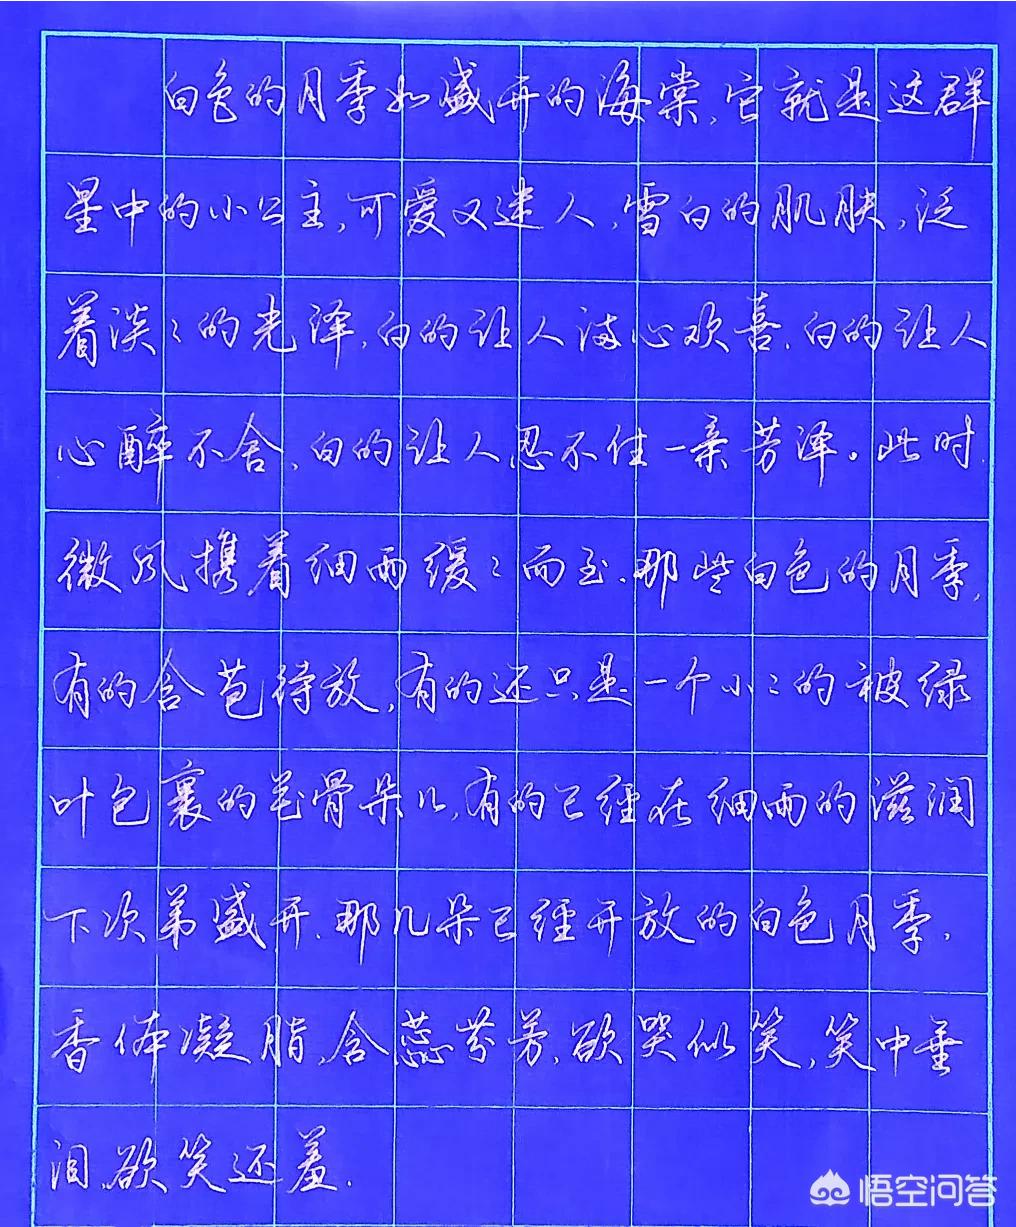 白色的月季如盛开的海棠,它就是这群
星中的小公主,可爱又迷人,雪白的肌肤,泛
着淡々的光泽,白的让人满心欢喜,白的让人
心醉不舍,白的让人忍不住一亲芳泽。此时,
微风携着细雨缓々而至,那些白色的月季,
有的含苞待放,有的还只是一个小々的被绿
叶包裹的花骨朵儿,有的已经在细雨的滋润
下次第盛开,那几朵已经开放的白色月季,
香体凝脂,含蕊芬芳,欲哭似笑,笑中垂
泪,欲笑还羞.
悟空问答